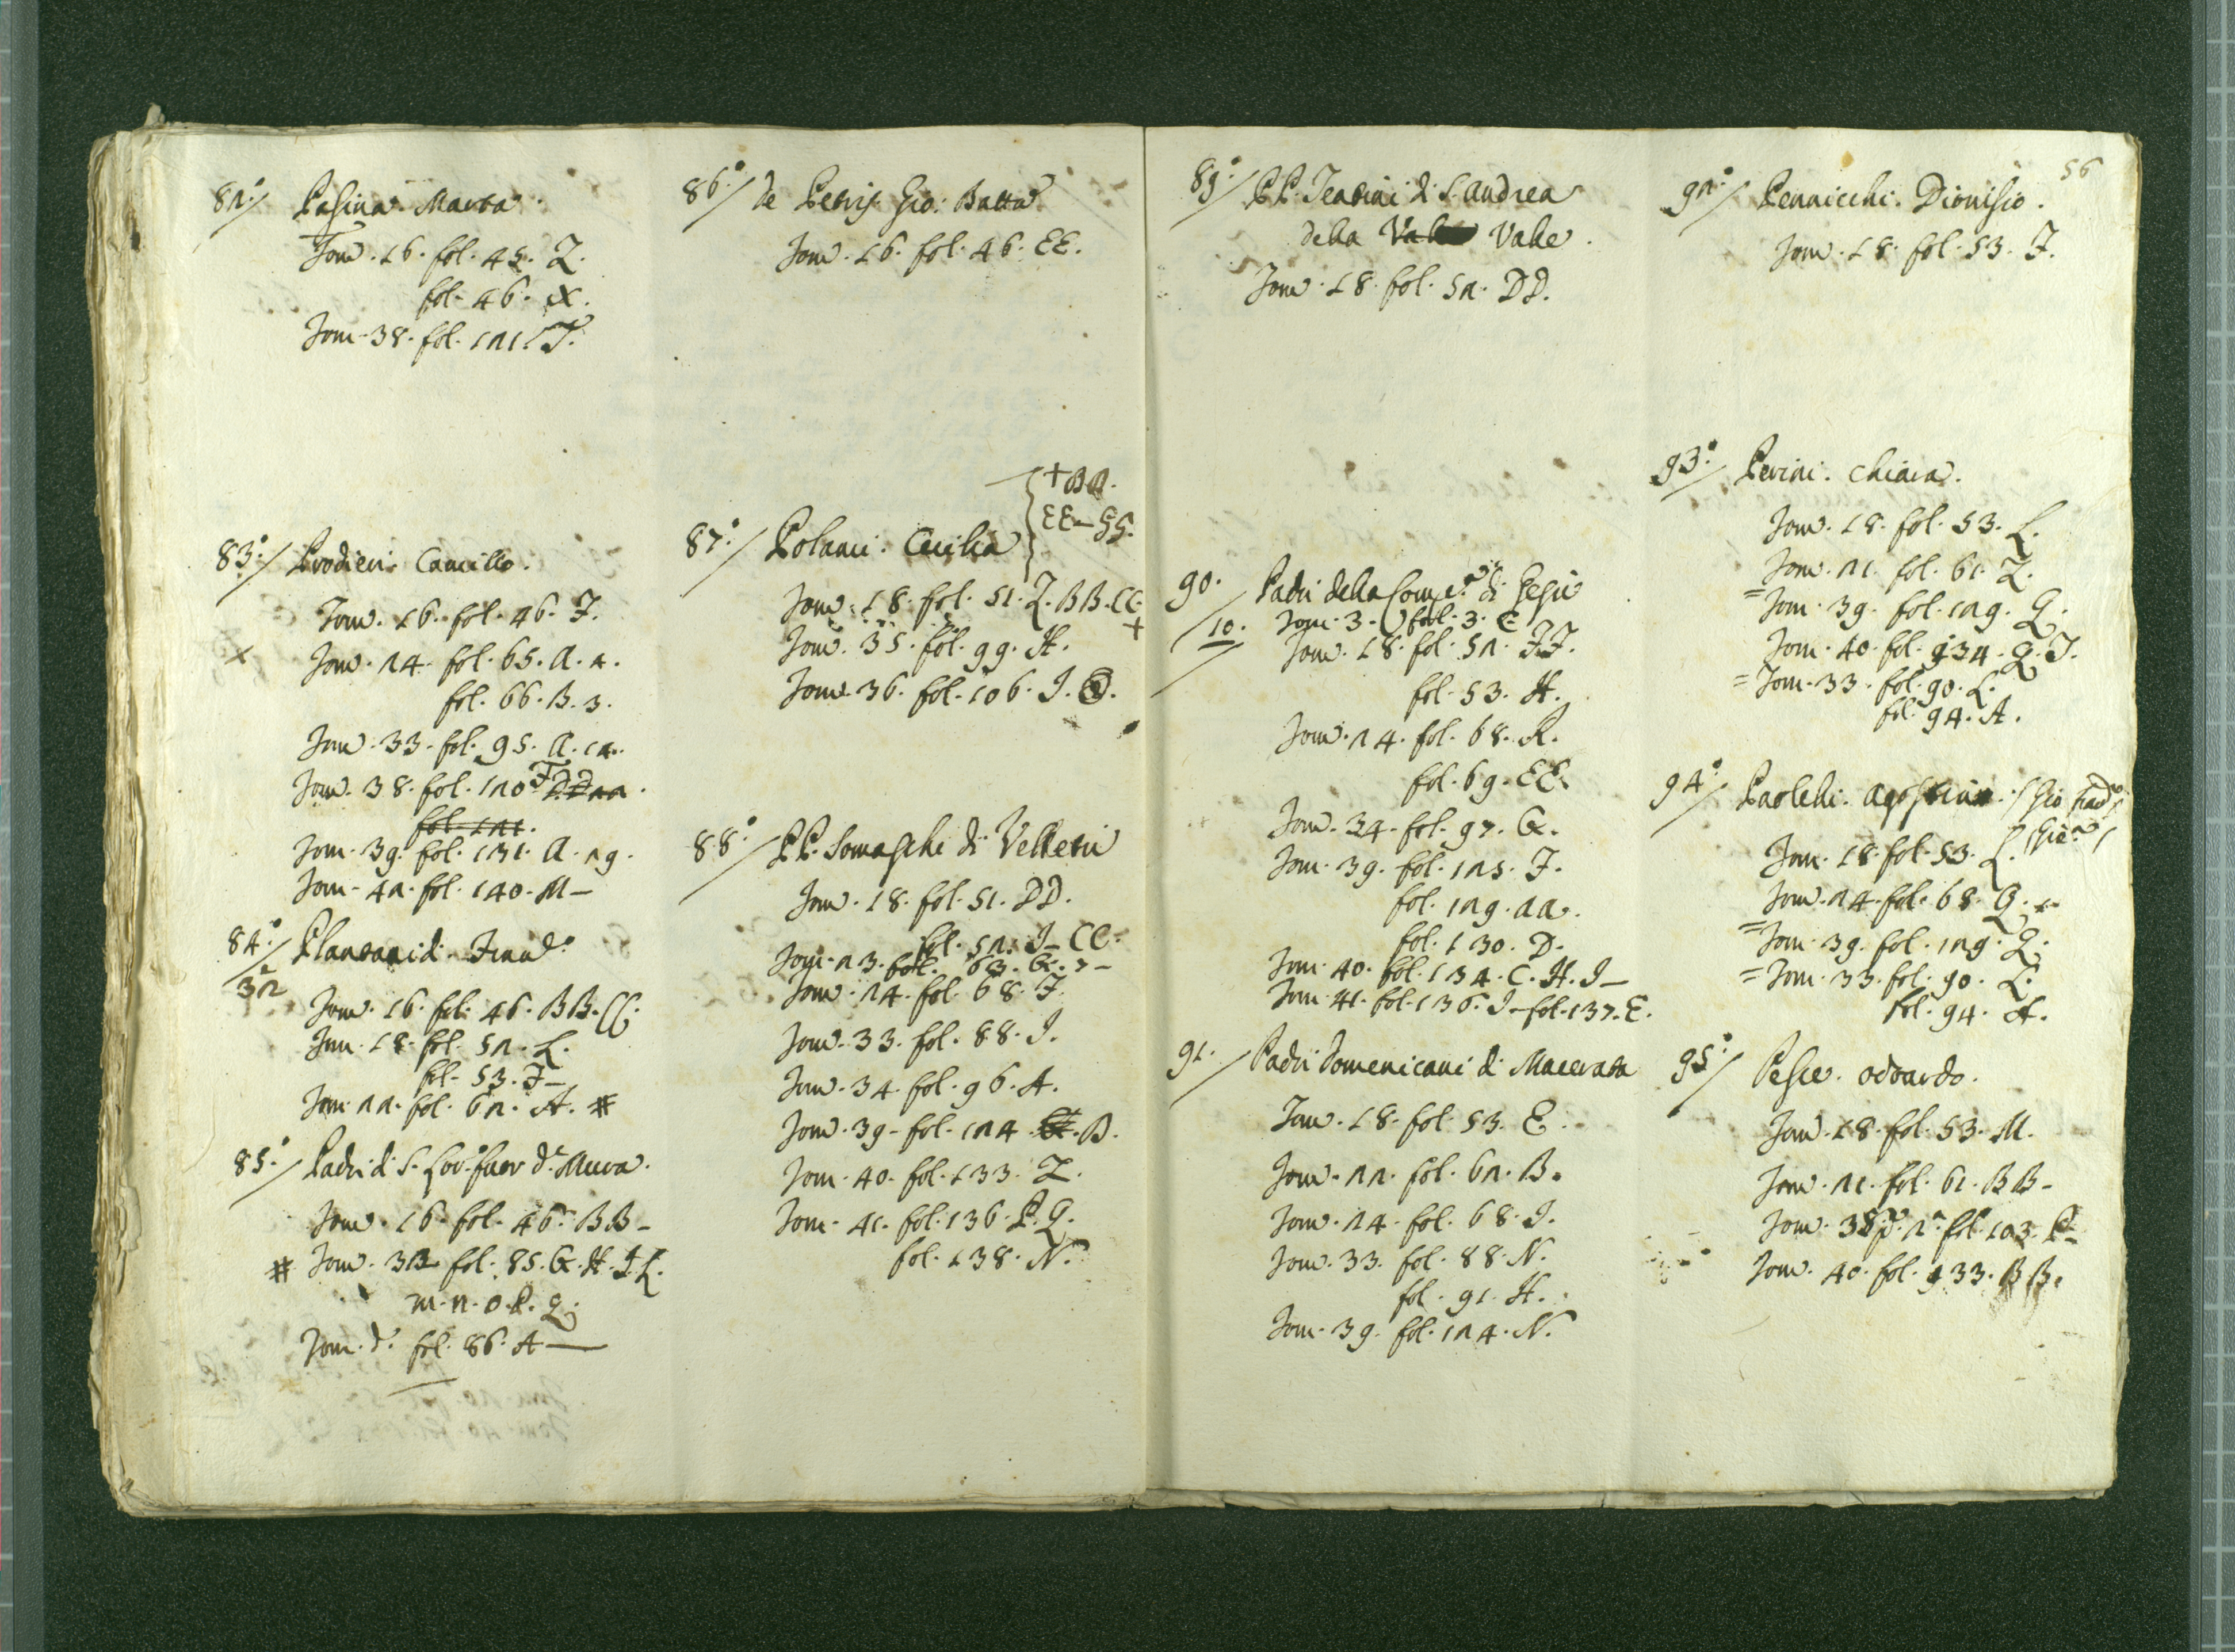 82°/ Pasina. Marta.
Tom. 16. fol. 45. Z.
fol. 46. X.
Tom. 38. fol. 121. T.
83°/ Prodieri. Camillo.
Tom. 16. fol. 46. F.
x Tom. 24. fol. 65. A. 2.
fol. 66. B. 3.
Tom. 33. fol. 95. A. 12.
Tom. 38. fol. 120. F
fol. 121.
Tom. 39. fol. 131. A. 29.
Tom. 42. fol. 140. M—
84°/
32
Tom. 16. fol. 46. BB. CC.
Tom. 18. fol. 52. L.
fol. 53. F—
Tom. 22. fol. 62. A. #
85°/ Padri di S.
Tom. 16. fol. 46. BB—
# Tom. 33 fol. 85. G. H. I. L.
m. n. o. p. q.
Tom. d.° fol. 86. A—
86°/ de Petris Gio: Batta
Tom. 16. fol. 46. EE.
+ BB.
EE—GG.
87°/ Polanci. Cecilia
Tom. 18. fol. 51. Z. BB. CC.
+
Tom. 35. fol. 99. H.
Tom. 36. fol. 106. I. O.
88°/ PP. Somaschi di Velletri
Tom. 18. fol. 51. DD.
fol. 52. I—CC.
Tom. 23. fol. 63. G. 7—
Tom. 24. fol. 68. F.
Tom. 33. fol. 88. I.
Tom. 34. fol. 96. A.
Tom. 39. fol. 124. B.
Tom. 40. fol. 133. Z.
Tom. 41. fol. 136. P. Q.
fol. 138. N.
89°/ PP. Teatini di S. Andrea
della Valle Valle.
Tom. 18. fol. 52. DD.
90. Padri della Comp.ª di Gesù
/10. Tom. 3. fol. 3. E
Tom. 18. fol. 52. FF.
fol. 53. H.
Tom. 24. fol. 68. R.
fol. 69. EE.
Tom. 34. fol. 97. G.
Tom. 39. fol. 125. F.
fol. 129. AA.
fol. 130. D.
Tom. 40. fol. 134. C. H. I—
Tom. 41. fol. 136. I—fol. 137. E.
91./ Padri Domenicani di Macerata
Tom. 18. fol. 53. E.
Tom. 22. fol. 62. B.
Tom. 24. fol. 68. I.
Tom. 33. fol. 88. N.
fol. 91. H.
Tom. 39. fol. 124. N.
56
92°/ Pennicchi. Dionisio.
Tom. 18. fol. 53. F.
93°/ Perini. Chiara.
Tom. 18. fol. 53. L.
Tom. 21. fol. 61. Z.
= Tom. 39. fol. 129. Q.
Tom. 40. fol. 134. Q. T.
= Tom. 33. fol. 90. L.
fol. 94. A.
94°/ Paolelli. Agostino.
Tom. 18. fol. 53. L.
Tom. 24. fol. 68. Q.
= Tom. 39. fol. 129. Q.
= Tom. 33. fol. 90. L.
fol. 94. A.
95°/ Pesce. Odoardo.
Tom. 18. fol. 53. M.
Tom. 21. fol. 61. BB—
Tom. 35. p. 2ª fol. 103. P—
Tom. 40. fol. 133. BB.